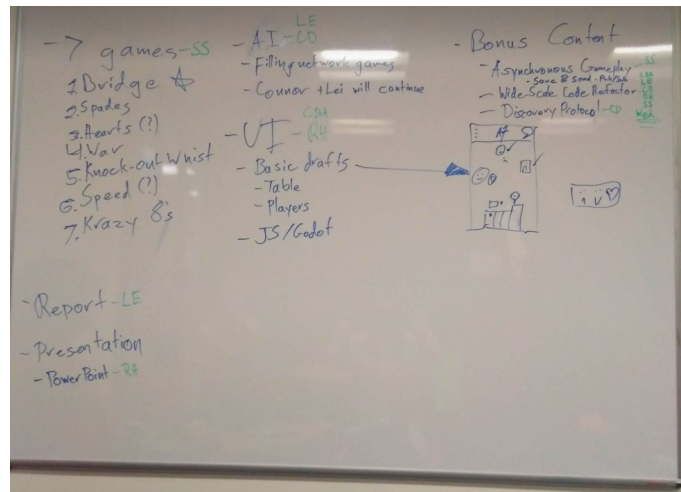 - 7 games - SS
1. Bridge
2. Spades
3. Hearts (?)
4. War
5. Knock-out Whist
6. Speed (?)
7. Krazy 8's
- Report - LE
- Presentation
- PowerPoint - RH
LE
- A.I - CD
- Filling network games
- Connor + Lei will continue
- UI - RH
- Basic drafts
- Table
- Players
- JS/Godot
- Bonus Content
- Asynchronous Gameplay - SS
- Save & Send
- Wide-Scale Code Refactor
- Discovery Protocol - CD